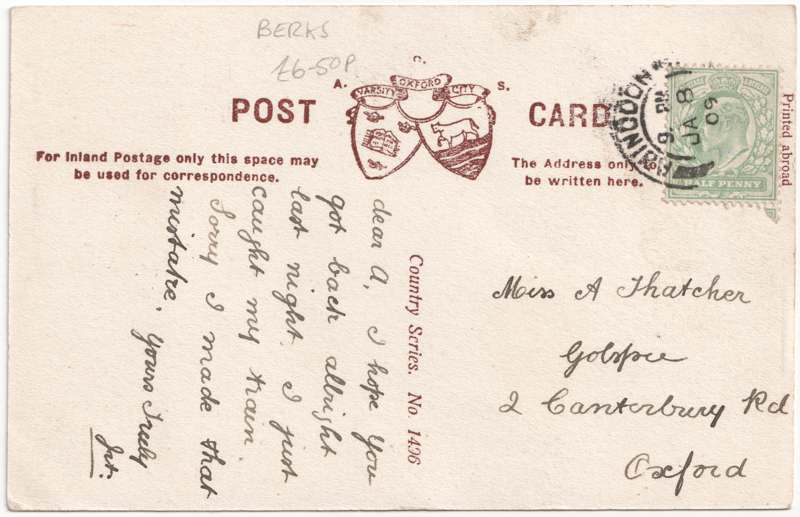 BERKS
£6-50P
C.
A. OXFORD S.
VARSITY CITY
POST CARD
For Inland Postage only this space may
be used for correspondence.
The Address only to
be written here.
ABINGDON
9 PM
JA 8
09
HALF PENNY
Printed abroad
dear A, I hope you
got back allright
last night. I just
caught my train.
Sorry I made that
mistake. Yours Truly
Country Series. No 1496
Miss A Thatcher
Golspie
2 Canterbury Rd
Oxford